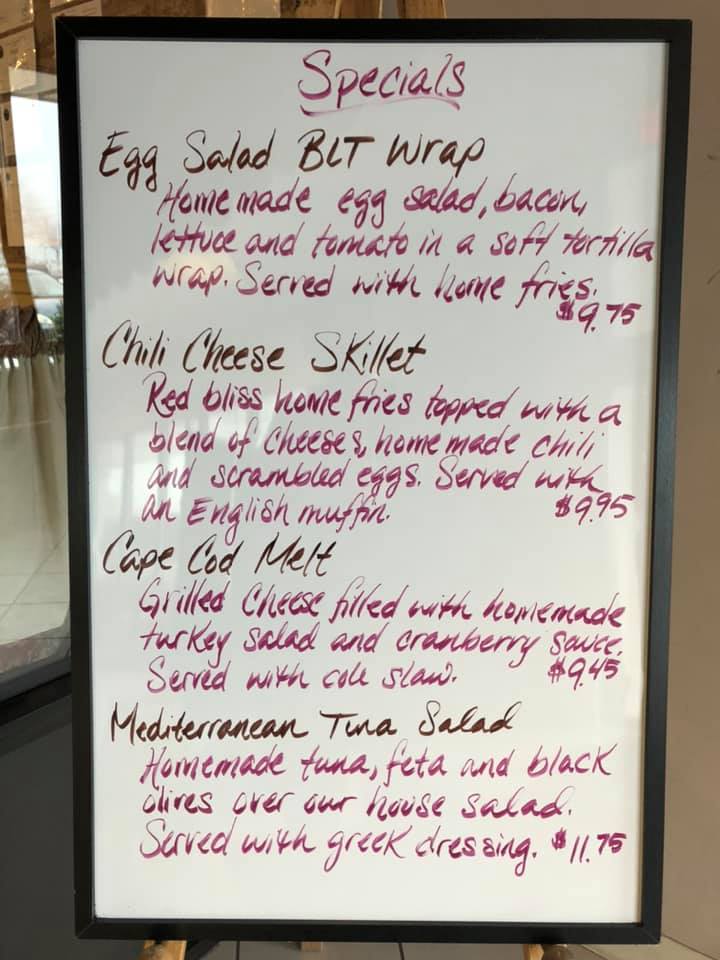 Specials
Egg Salad BLT Wrap
Homemade egg salad, bacon,
lettuce and tomato in a soft tortilla
wrap. Served with home fries.
$9.75
Chili Cheese Skillet
Red bliss home fries topped with a
blend of cheeses, homemade chili
and scrambled eggs. Served with
an English muffin. $9.95
Cape Cod Melt
Grilled Cheese filled with homemade
turkey salad and cranberry sauce.
Served with cole slaw. $9.45
Mediterranean Tuna Salad
Homemade tuna, feta and black
olives over our house salad.
Served with greek dressing. $11.75